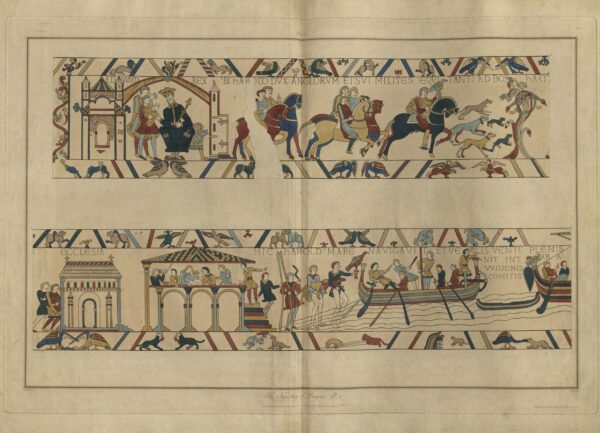 REX VBI HAROLD DVX ANGLORVM ET SVI MILITES EQVITANT AD BOS HAM
ECCLESIA
HIC HAROLD MARE NAVIGAVIT ET VELIS VENT PLENIS
NIT INT
VVIDONIS
COMITIS
The Tapestry of Bayeux Pl. I